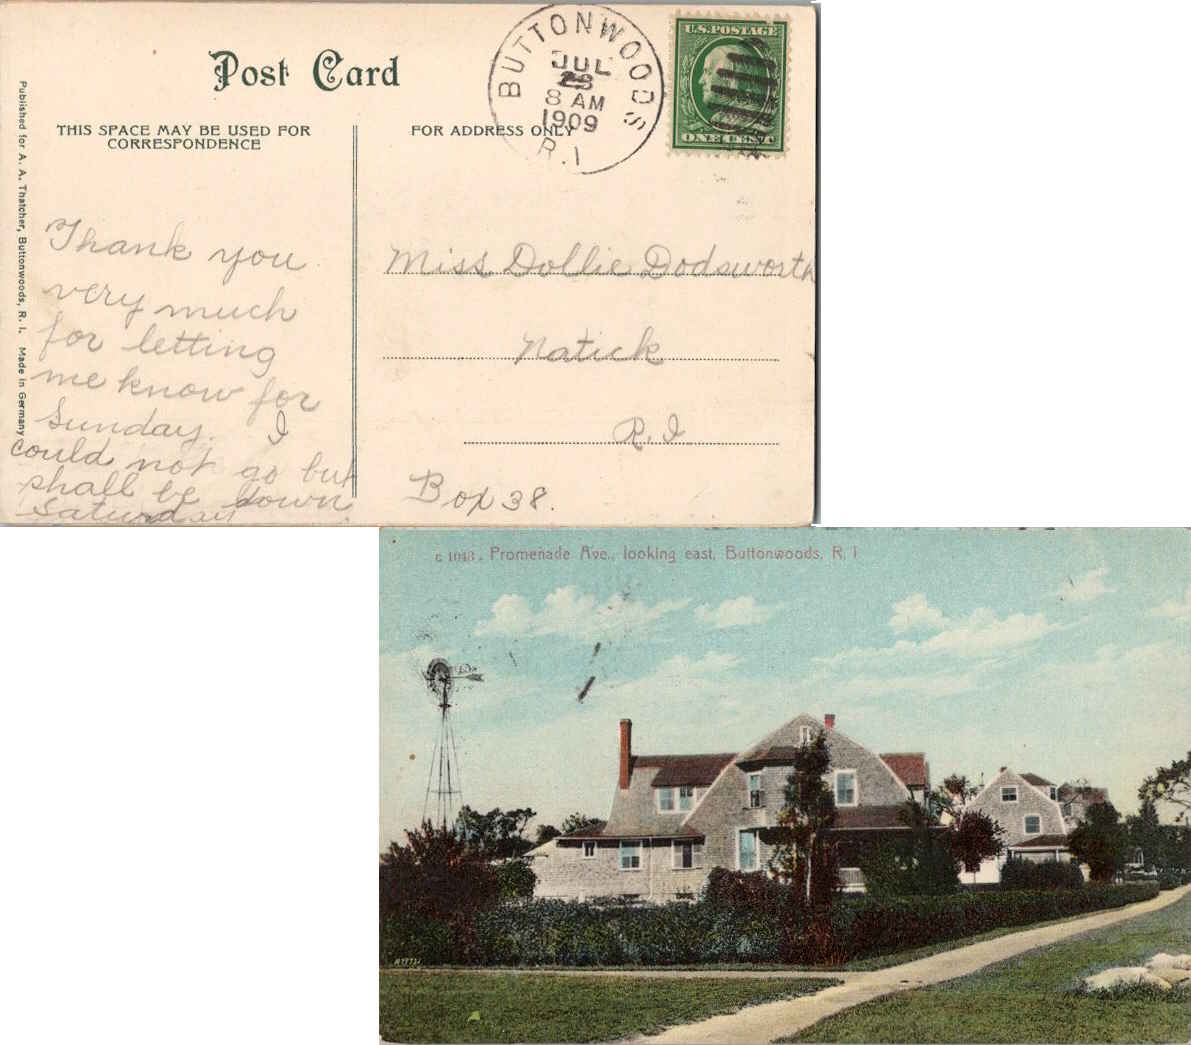 Post Card
THIS SPACE MAY BE USED FOR
CORRESPONDENCE
FOR ADDRESS ONLY
BUTTONWOODS
JUL
28
8 AM
1909
R.I
U.S. POSTAGE
ONE CENT
Published for A. A. Thatcher, Buttonwoods, R. I. Made in Germany
Thank you
very much
for letting
me know for
Sunday. I
could not go but
shall be down
Saturday
Miss Dollie Dodsworth
Natick
R.I.
Box 38.
c 1043. Promenade Ave., looking east, Buttonwoods, R, I